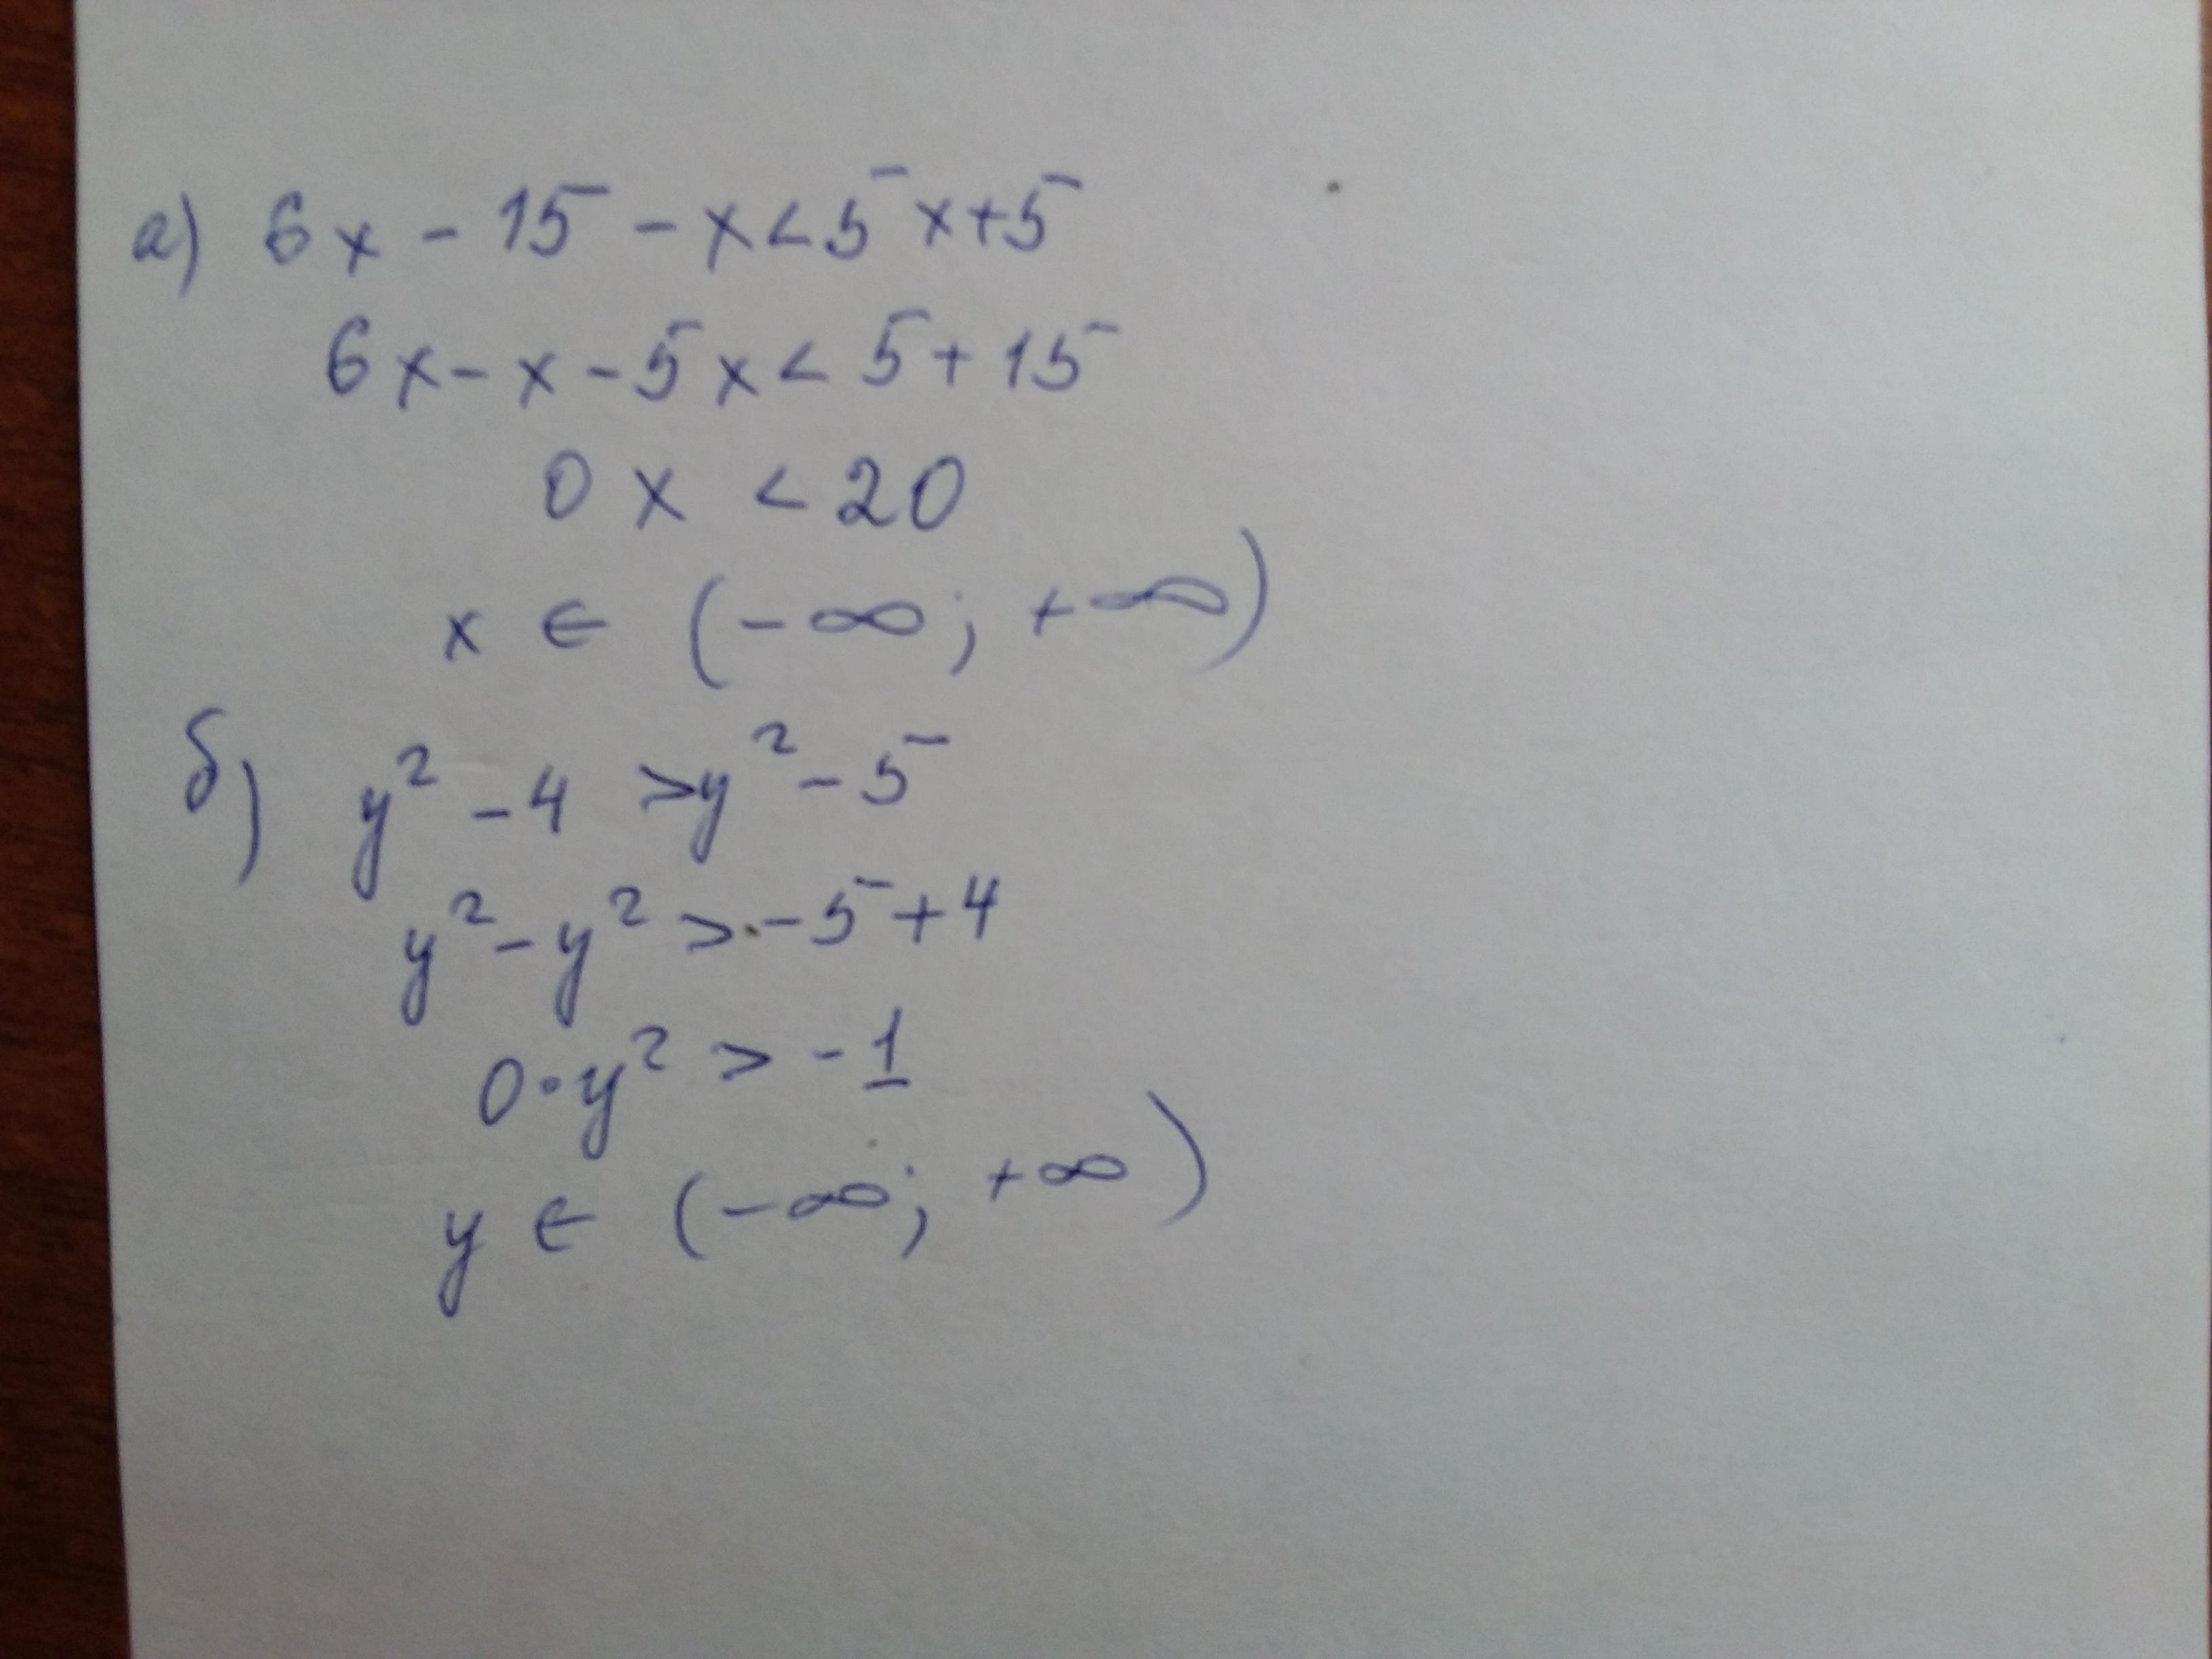 а) 6x - 15 - x < 5x + 5
6x - x - 5x < 5 + 15
0x < 20
x ∈ (-∞; +∞)
б) y² - 4 > y² - 5
y² - y² > -5 + 4
0·y² > -1
y ∈ (-∞; +∞)